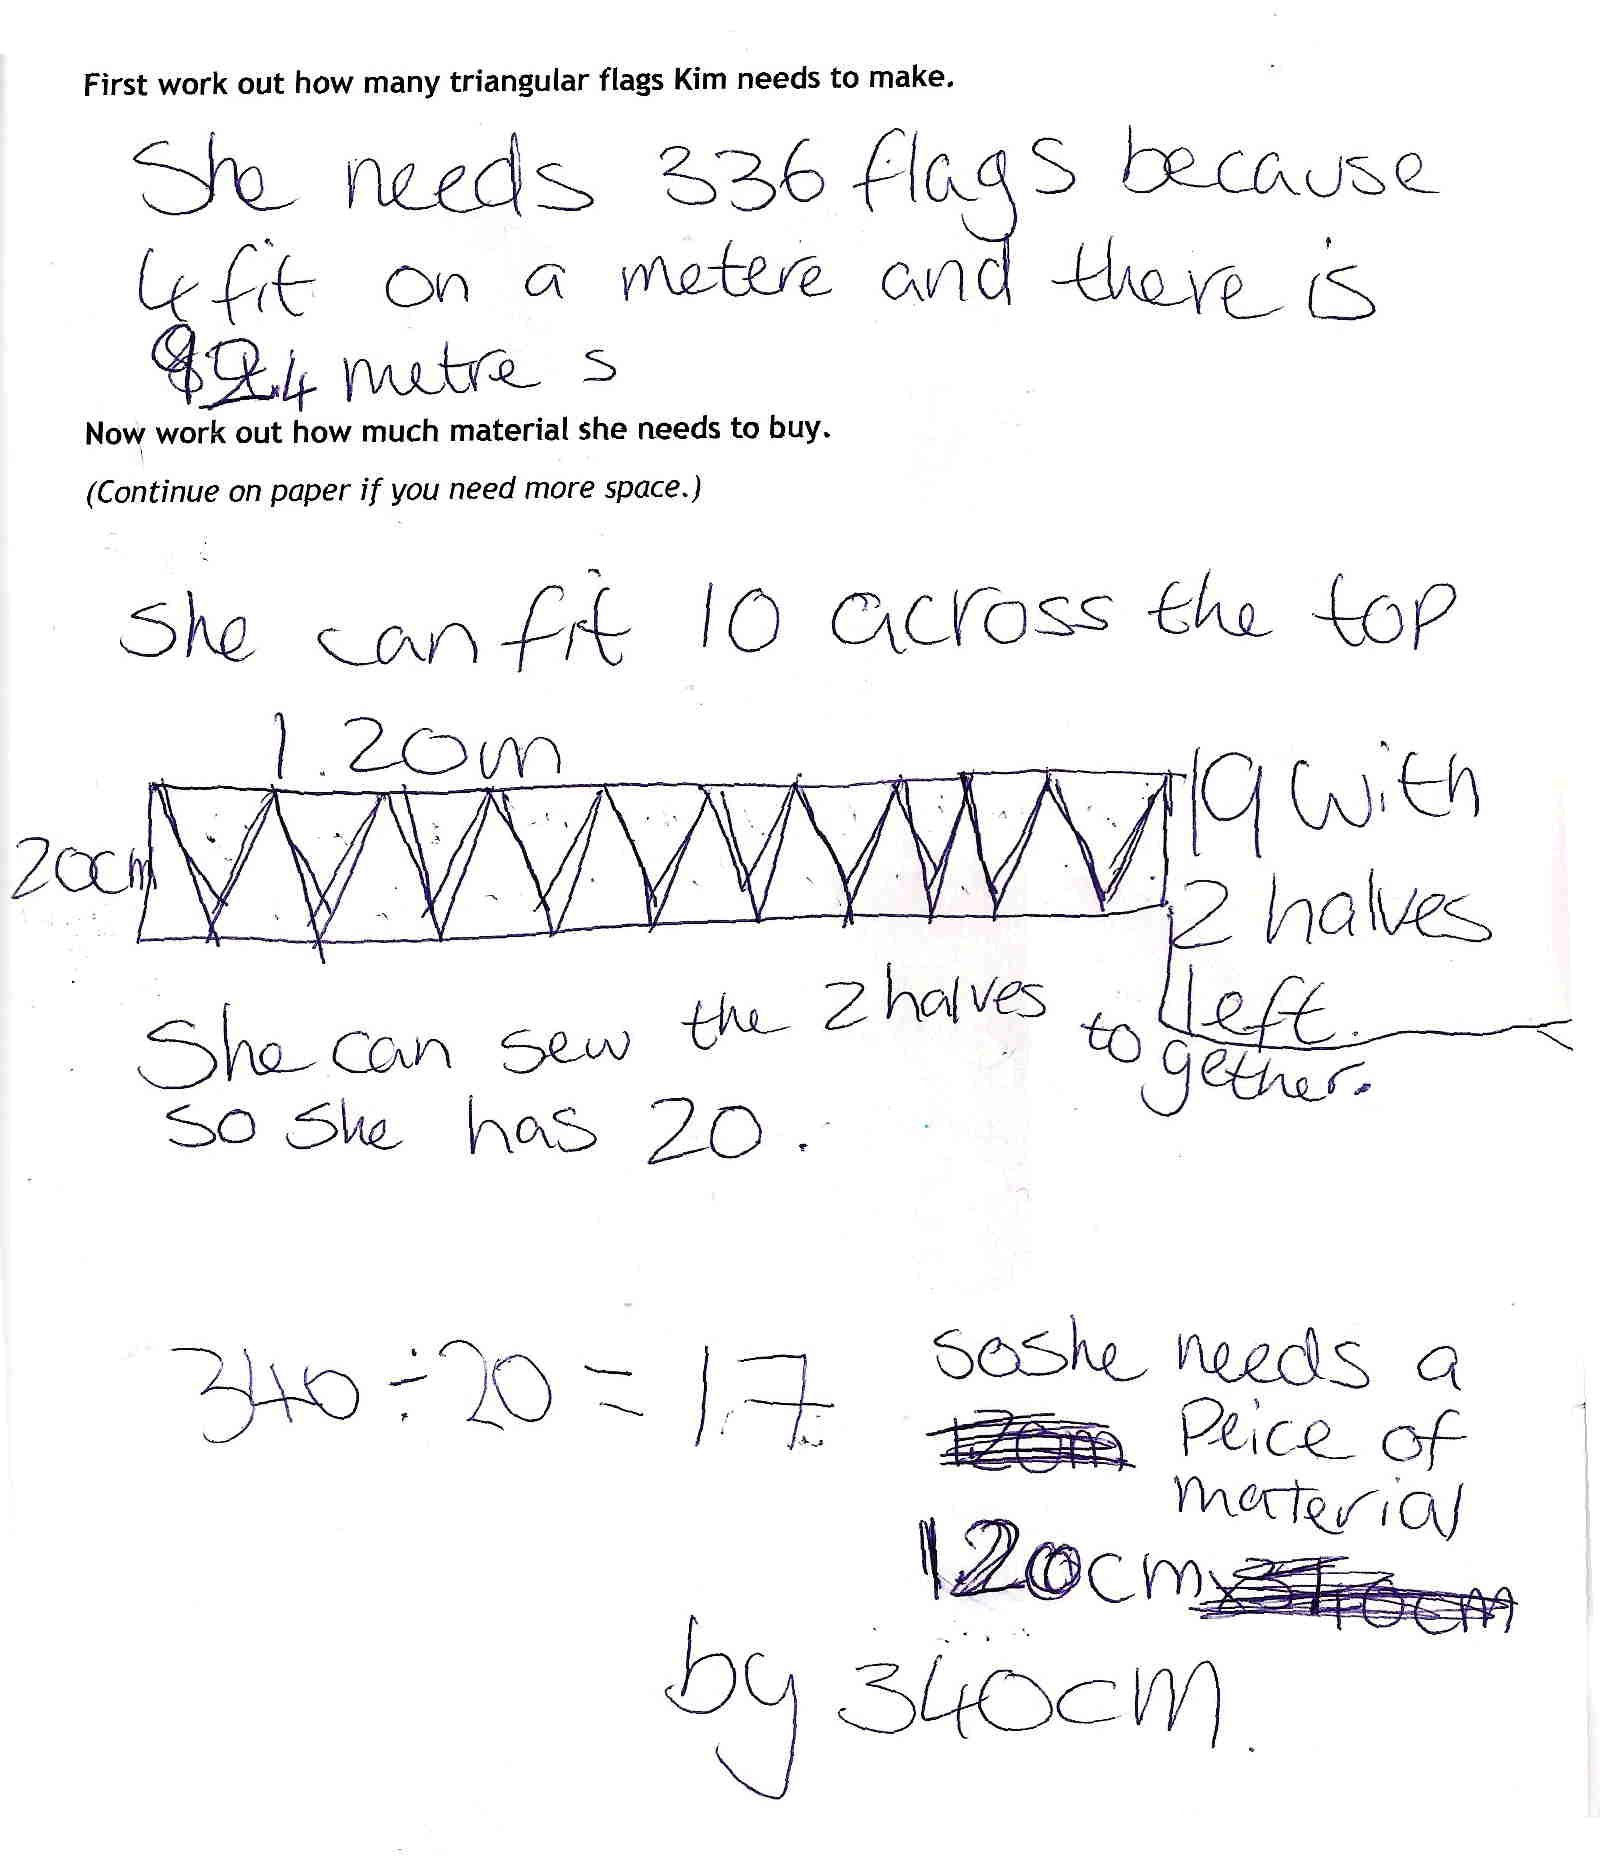 First work out how many triangular flags Kim needs to make.
She needs 336 flags because
4 fit on a metere and there is
metre s
Now work out how much material she needs to buy.
(Continue on paper if you need more space.)
She can fit 10 across the top
1.20m
20cm
19 with
2 halves
left.
She can sew the 2 halves together.
so she has 20.
340 ÷ 20 = 17
so she needs a
Peice of
material
120cm
by 340cm.